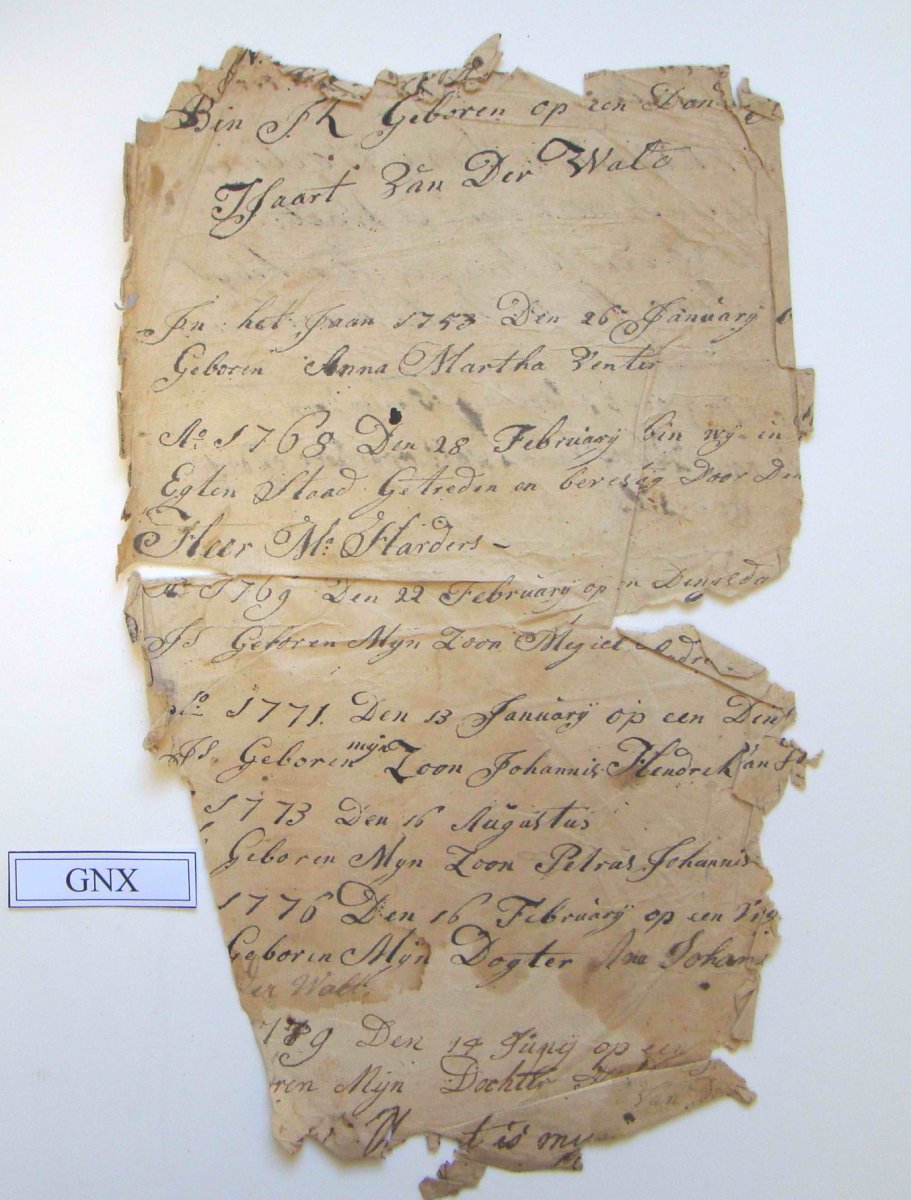 Bin Ik Geboren op een Don
Isaart Van Der Walt
In het Jaan 1753 Den 26 January
Geboren Anna Martha Venter
Ao 1768 Den 28 February bin wy in
Egten Staad Getreden en bevestig Door Den
Heer Mr Harders
1769 Den 22 February op n Dengsda
Is Geboren Myn Zoon Megiel Adr
Ao 1771. Den 13 January op een Din
Is Geboren myn Zoon Johannis Hendrek Van
1773 Den 16 Augustus
Geboren Myn Zoon Petrus Johannis
1776 Den 16 February op een Vry
Geboren Myn Dogter Ana Johan
der Walt.
GNX
789 Den 14 Juny op een
ren Myn Dochter
Van De
t is my